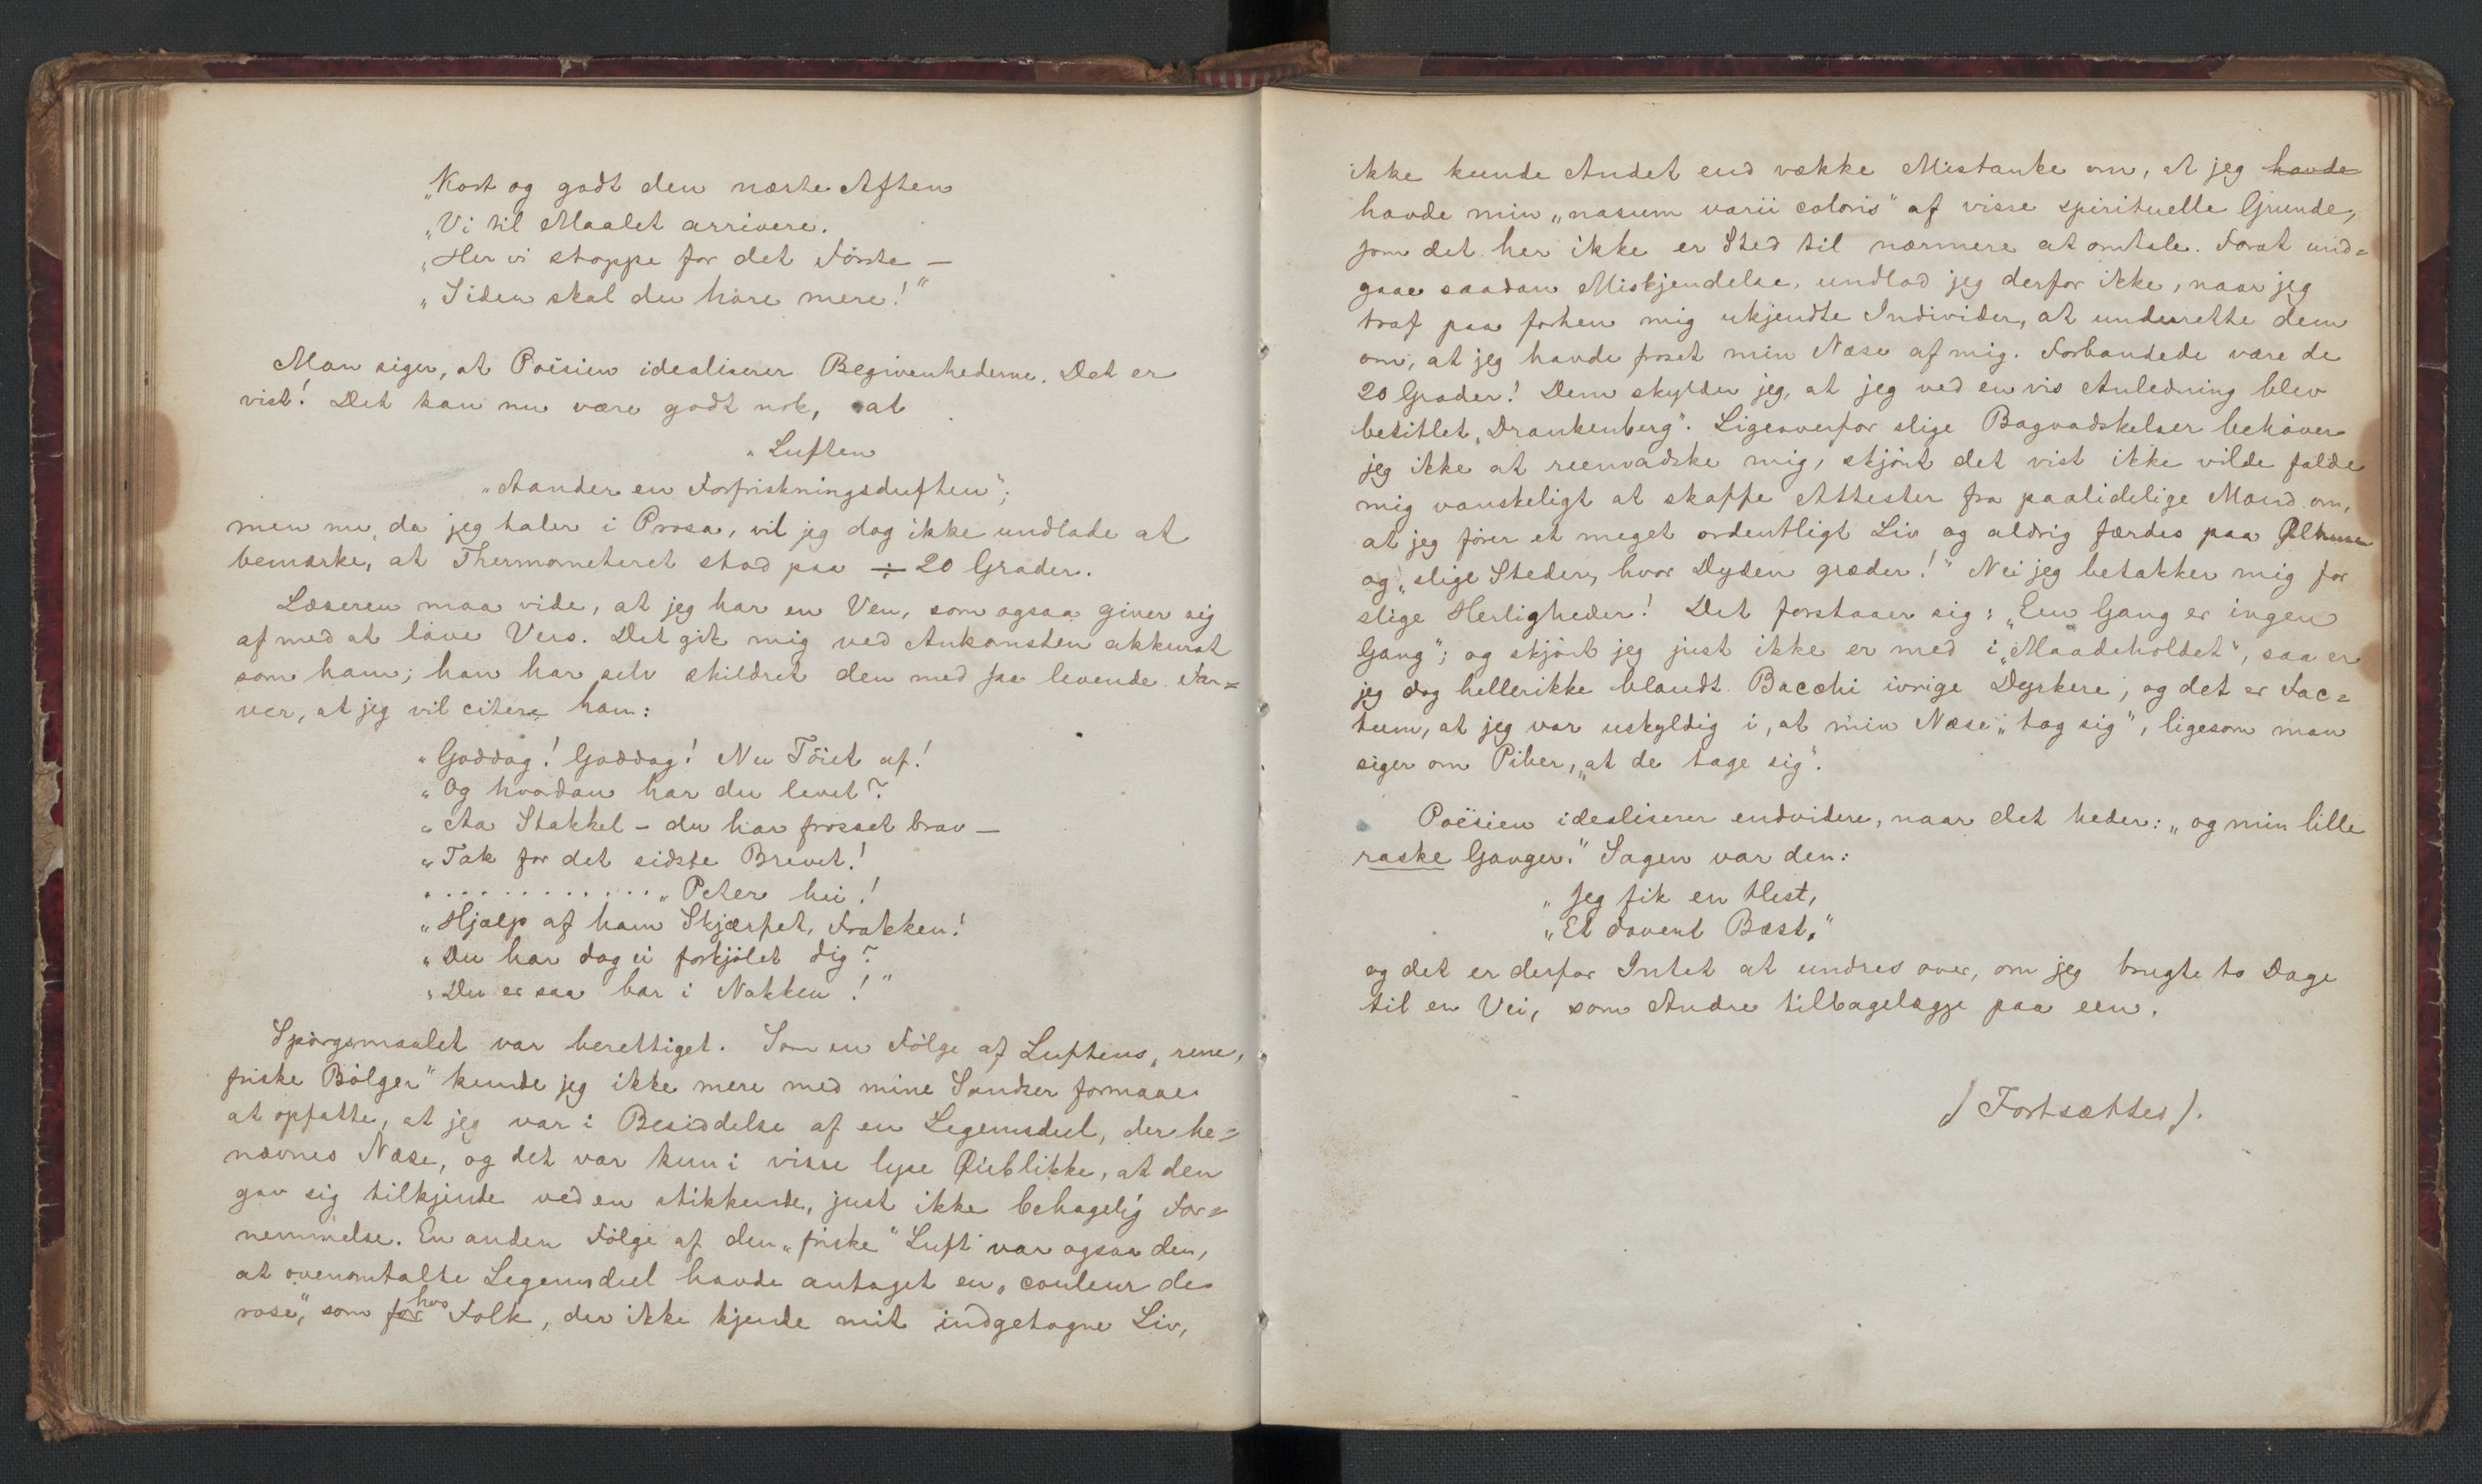 „Kort og godt den næste Aften
„Vi til Maalet arrivere.
„Her vi stoppe for det Förste —
„Siden skal du höre mere!"
Man siger, at Poësien idealiserer Begivenhederne. Det er
vist! Det kan nu være godt nok, at
„Luften
„Aander en Forfriskningsduften";
men nu, da jeg taler i Prosa, vil jeg dog ikke undlade at
bemærke, at Thermometeret stod paa ÷ 20 Grader.
Læseren maa vide, at jeg har en Ven, som ogsaa giver sig
af med at lave Vers. Det gik mig ved Ankomsten akkurat
som ham; han har selv skildret den med saa levende Far=
ver, at jeg vil citere ham:
„Goddag! Goddag! Nu Töiet af!
„Og hvordan har du levet?
„Aa Stakkel – du har frosset brav —
„Tak for det sidste Brevet!
. . . . . . . . . . . . „Peter hei!
„Hjælp af ham Skjærfet, Frakken!
„Du har dog ei forkjölet dig?
„Du er saa bar i Nakken!"
Spörgsmaalet var berettiget. Som en Fölge af Luftens „rene,
friske Bölger" kunde jeg ikke mere med mine Sandser formaae
at opfatte, at jeg var i Besiddelse af en Legemsdeel, der be=
nævnes Næse, og det var kun i visse lyse Øieblikke, at den
gav sig tilkjende ved en stikkende, just ikke behagelig For=
nemmelse. En anden Fölge af den „friske" Luft var ogsaa den,
at ovenomtalte Legemsdeel havde antaget en „couleur de
rose", som for hos Folk, der ikke kjende mit indgetogne Liv,
ikke kunde Andet end vække Mistanke om, at jeg havde
havde min „nasum varii coloris" af visse spirituelle Grunde,
som det her ikke er Sted til nærmere at omtale. Forat und=
gaae saadan Miskjendelse, undlod jeg derfor ikke, naar jeg
traf paa forhen mig ukjendte Individer, at underrette dem
om, at jeg havde froset min Næse af mig. Forbandede være de
20 Grader! Dem skylder jeg, at jeg ved en vis Anledning blev
betitlet „Drankenberg". Ligeoverfor slige Bagvadskelser behöver
jeg ikke at reenvadske mig, skjönt det vist ikke vilde falde
mig vanskeligt at skaffe Attester fra paalidelige Mænd om,
at jeg förer et meget ordentligt Liv og aldrig færdes paa Ølhuse
og „slige Steder, hvor Dyden græder!" Nei jeg betakker mig for
slige Herligheder! Det forstaaer sig: „Een Gang er ingen
Gang"; og skjönt jeg just ikke er med i „Maadeholdet", saa er
jeg dog hellerikke blandt Bacchi ivrige Dyrkere; og det er Fac=
tum, at jeg var uskyldig i, at min Næse „tog sig", ligesom man
siger om Piber, „at de tage sig".
Poësien idealiserer endvidere, naar det heder: „og min lille
raske Ganger." Sagen var den:
„Jeg fik en Hest,
„Et dovent Bæst,"
og det er derfor Intet at undres over, om jeg brugte to Dage
til en Vei, som Andre tilbagelægge paa een.
/ Fortsættes /.